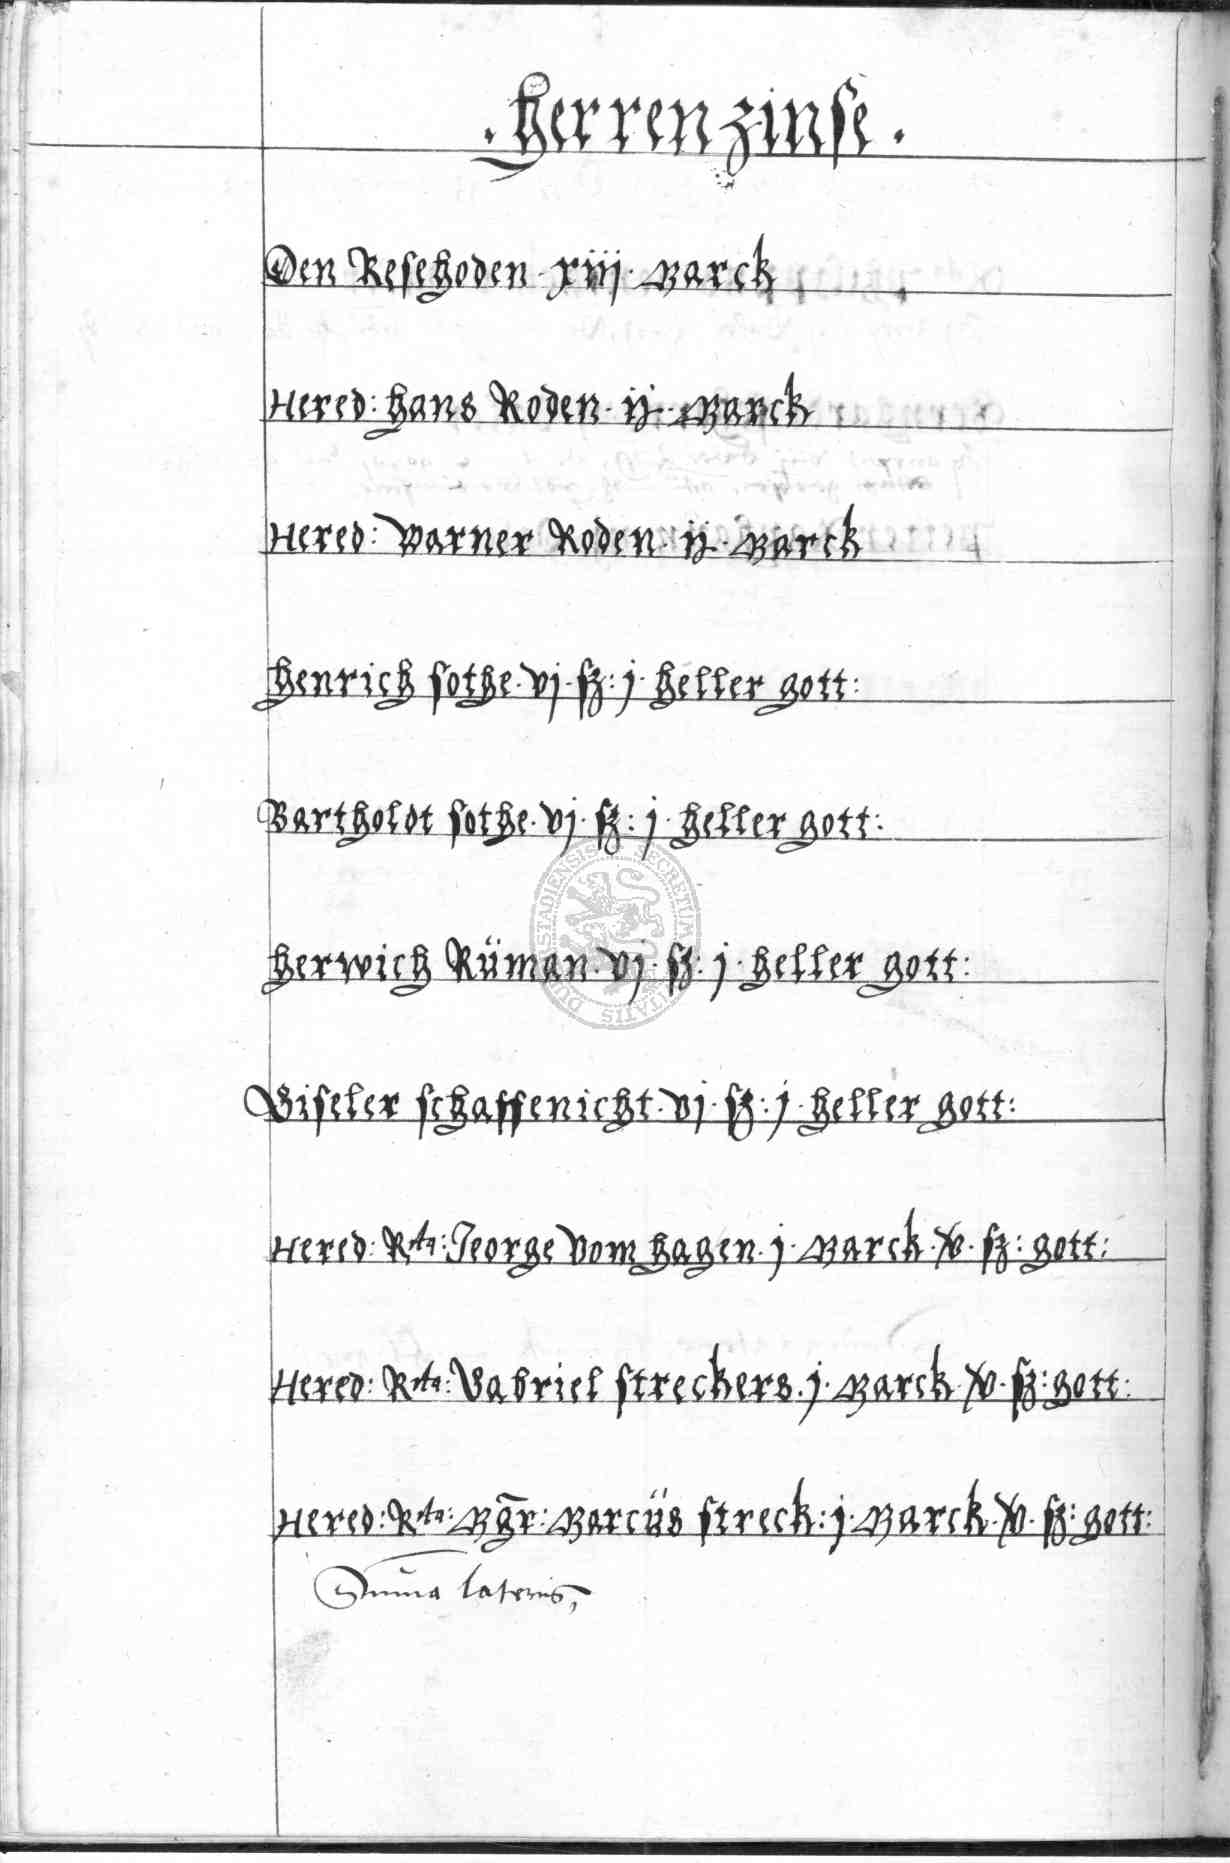 . Herren zinse .
Den Resehoden · xiij · Marck
Hered: Hans Roden · ij · Marck
Hered: Warner Roden · ij · Marck
Henrich sothe · vj · sz: j · heller gott:
Bartholdt sothe · vj · sz: j · heller gott:
Herwich Rüman · vj · sz: j · heller gott:
Giseler schaffenicht · vj · sz: j · heller gott:
Hered: Jeorge Vom Hagen · j · Marck · v · sz: gott:
Hered: Gabriel streckers · j · Marck · v · sz: gott:
Hered: Mgr: Marcüs streck: j · Marck · v · sz: gott:
Suma lateris
SECRETUM DUDERSTADIENSIS